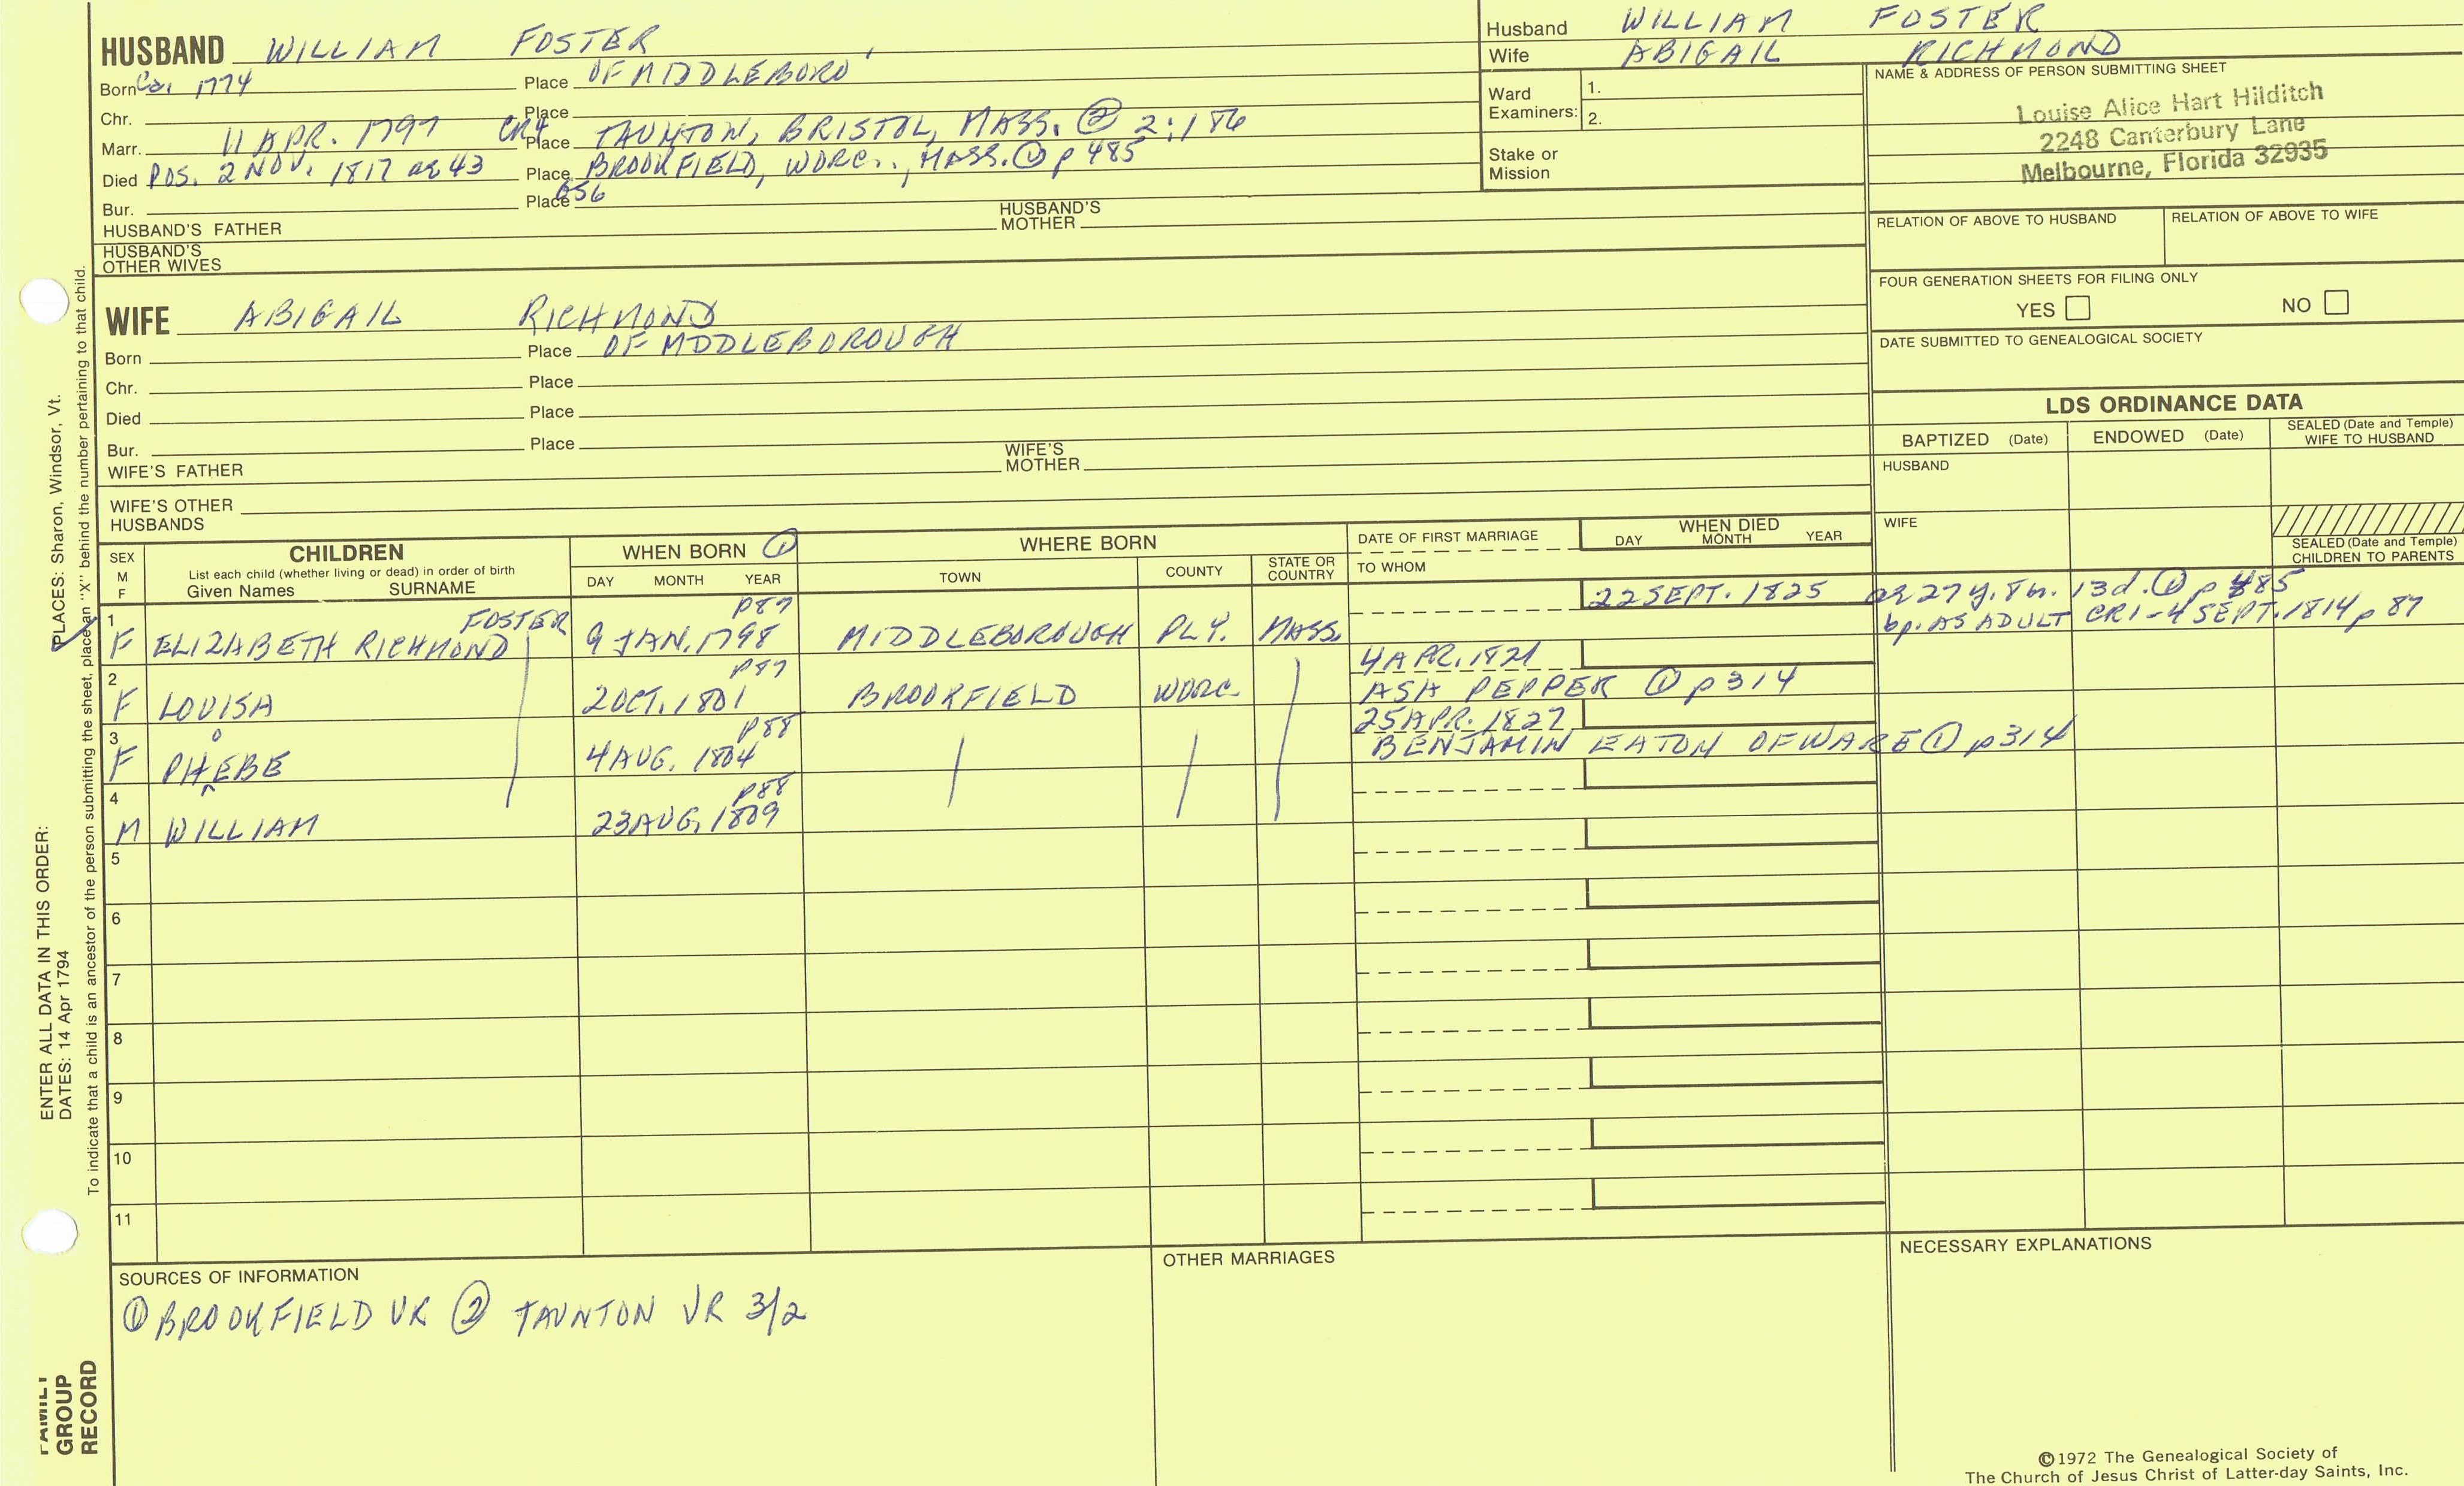 HUSBAND WILLIAM FOSTER
Born Ca. 1774 Place OF MIDDLEBORO
Chr. Place
Marr. 11 APR. 1797 CR4 Place TAUNTON, BRISTOL, MASS. ② 2:186
Died POS. 2 NOV. 1817 ae 43 Place BROOKFIELD, WORC., MASS. ① p 485
Bur. Place 656
HUSBAND'S FATHER HUSBAND'S MOTHER
HUSBAND'S OTHER WIVES
Husband WILLIAM FOSTER
Wife ABIGAIL RICHMOND
Ward Examiners: 1.
2.
Stake or Mission
NAME & ADDRESS OF PERSON SUBMITTING SHEET
Louise Alice Hart Hilditch
2248 Canterbury Lane
Melbourne, Florida 32935
RELATION OF ABOVE TO HUSBAND RELATION OF ABOVE TO WIFE
FOUR GENERATION SHEETS FOR FILING ONLY
YES NO
DATE SUBMITTED TO GENEALOGICAL SOCIETY
WIFE ABIGAIL RICHMOND
Born Place OF MIDDLEBOROUGH
Chr. Place
Died Place
Bur. Place
WIFE'S FATHER WIFE'S MOTHER
WIFE'S OTHER HUSBANDS
LDS ORDINANCE DATA
BAPTIZED (Date) ENDOWED (Date) SEALED (Date and Temple) WIFE TO HUSBAND
HUSBAND
WIFE
SEALED (Date and Temple) CHILDREN TO PARENTS
SEX M F
CHILDREN
List each child (whether living or dead) in order of birth
Given Names SURNAME
WHEN BORN ①
DAY MONTH YEAR
WHERE BORN
TOWN COUNTY STATE OR COUNTRY
DATE OF FIRST MARRIAGE
TO WHOM
WHEN DIED
DAY MONTH YEAR
1 FOSTER p87 22 SEPT. 1825 ae 27 y. 8 m. 13 d. ① p 485
F ELIZABETH RICHMOND 9 JAN. 1798 MIDDLEBOROUGH PLY. MASS. bp. AS ADULT CR1-4 SEPT. 1814 p 87
2 p87 4 APR. 1821
F LOUISA 2 OCT. 1801 BROOKFIELD WORC. ASA PEPPER ① p 314
3 p88 25 APR. 1827
F PHEBE o 4 AUG. 1804 BENJAMIN EATON OF WARE ① p 314
4 p88
M WILLIAM 23 AUG. 1809
5
6
7
8
9
10
11
SOURCES OF INFORMATION
① BROOKFIELD VR ② TAUNTON VR 3/2
OTHER MARRIAGES
NECESSARY EXPLANATIONS
©1972 The Genealogical Society of
The Church of Jesus Christ of Latter-day Saints, Inc.
ENTER ALL DATA IN THIS ORDER:
DATES: 14 Apr 1794
PLACES: Sharon, Windsor, Vt.
To indicate that a child is an ancestor of the person submitting the sheet, place an "X" behind the number pertaining to that child.
FAMILY
GROUP
RECORD